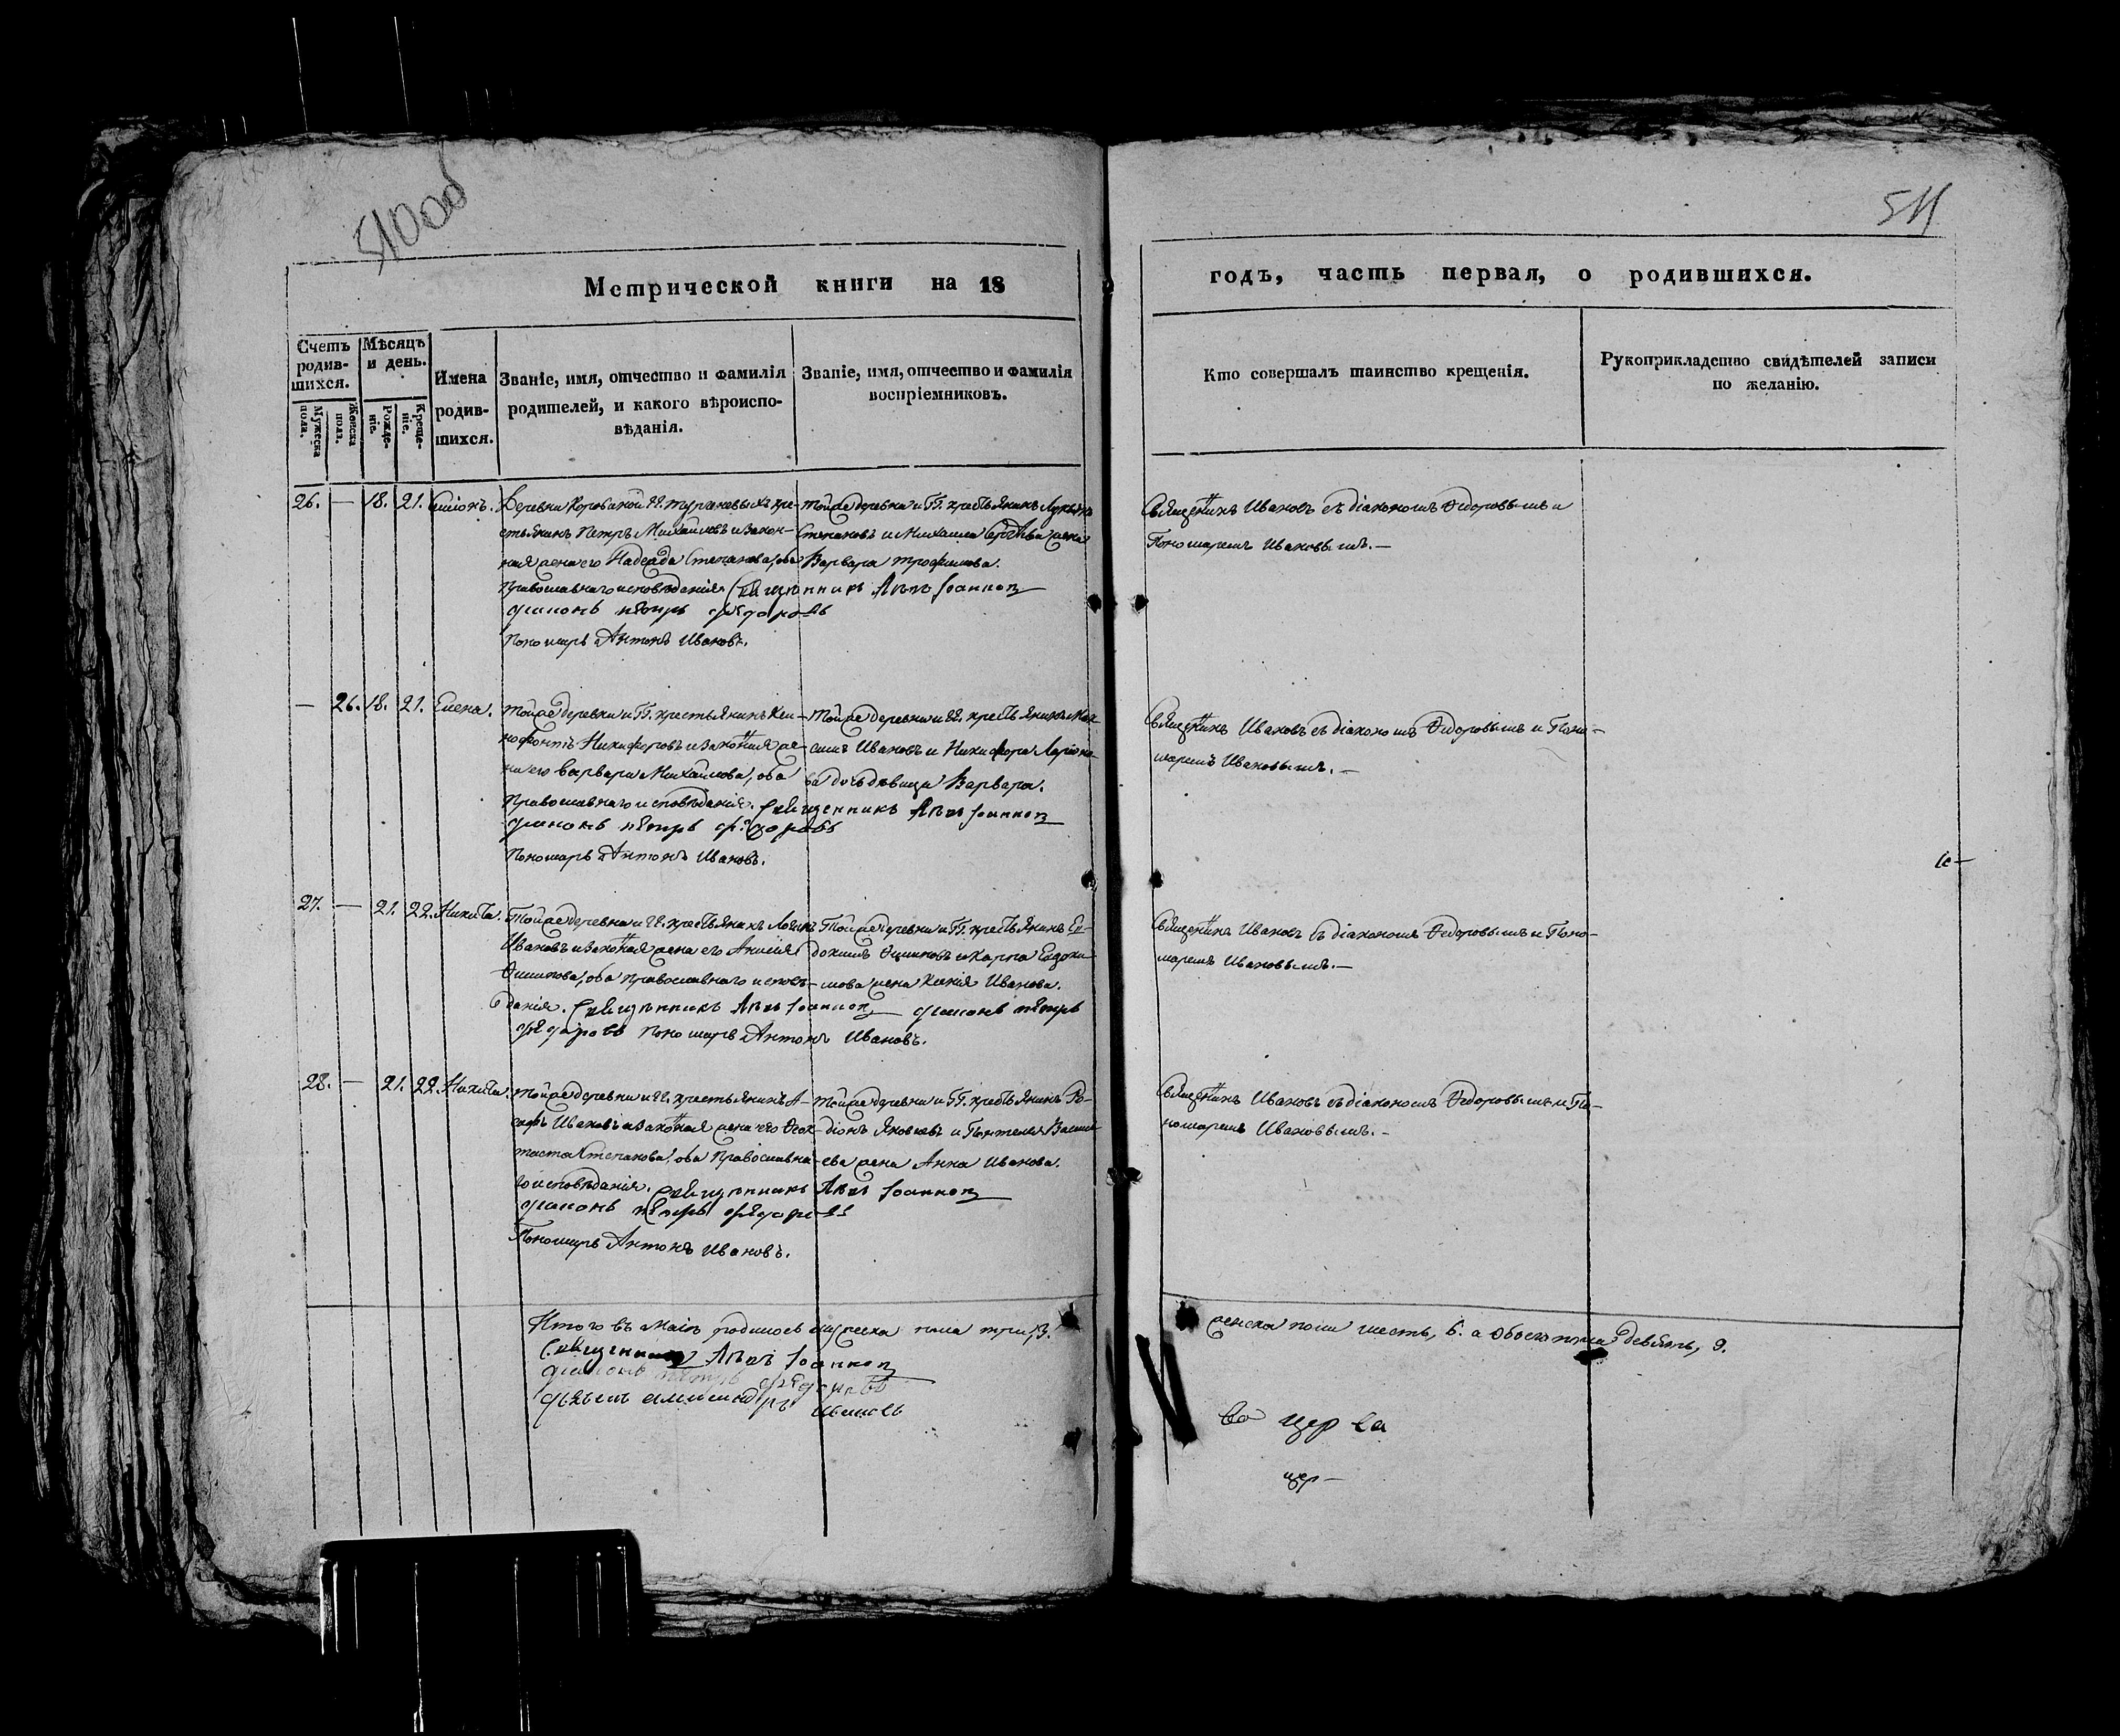 510об
511
Метрической книги на 18
годъ, часть первая, о родившихся.
Счетъ родив-шихся.
Мѣсяцъ и день.
Имена родив-шихся.
Званіе, имя, отчество и фамилія родителей, и какого вѣроиспо-вѣданія.
Званіе, имя, отчество и фамилія воспріемниковъ.
Кто совершалъ таинство крещенія.
Рукоприкладство свидѣтелей записи по желанію.
Мужеска пола.
Женска пола.
Рожде-ніе.
Креще-ніе.
26. — 18. 21. Симіонъ.
Деревни кре-
стьянинъ Петръ Михайловъ и закон-
ная жена его Надежда Степанова, оба
Православнаго исповѣданія Священникъ Іоаннов
Диаконъ Петръ Федоровъ
Пономарь Антонъ Ивановъ.
Тойже деревни и ГГ. крестьянинъ
Степановъ и Михаила жена
Варвара Трофимова.
Священникъ Ивановъ съ діакономъ Ѳедоровымъ и
Пономаремъ Ивановымъ.—
— 26. 18. 21. Елена.
Тойже деревни и ГГ. крестьянинъ Ксе-
нофонтъ Никифоровъ и законная же-
на его Варвара Михайлова, оба
Православнаго исповѣданія. Священникъ Іоаннов
Диаконъ Петръ Федоровъ
Пономарь Антонъ Ивановъ.
Тойже деревни и ГГ. крестьянинъ Мак-
симъ Ивановъ и Никифора Ларіоно-
ва дочь дѣвица Варвара.
Священникъ Ивановъ съ діакономъ Ѳедоровымъ и Поно-
маремъ Ивановымъ.—
27. — 21. 22. Никита.
Тойже деревни и ГГ. крестьянинъ
Ивановъ и законная жена его Анисія
оба православнаго исповѣ-
данія. Священникъ Іоаннов Диаконъ Петръ
Федоровъ Пономарь Антонъ Ивановъ.
Тойже деревни и ГГ. крестьянинъ Ев-
докимъ и Карпа Евдоки-
мова жена Ксенія Иванова.
Священникъ Ивановъ съ діакономъ Ѳедоровымъ и Поно-
маремъ Ивановымъ.—
28. — 21. 22. Никита.
Тойже деревни и ГГ. крестьянинъ
Ивановъ и законная жена его Ѳеок-
тиста Степанова, оба Православна-
го исповѣданія. Священникъ Іоаннов
Диаконъ Петръ Федоровъ
Пономарь Антонъ Ивановъ.
Тойже деревни и ГГ. крестьянинъ Ро-
діонъ Яковлевъ и Пантелея Василь-
ева жена Анна Иванова.
Священникъ Ивановъ съ діакономъ Ѳедоровымъ и По-
номаремъ Ивановымъ.—
Итого въ Маіѣ родилось мужеска пола три, 3.
женска пола шесть, 6. а обоего пола девять, 9.
Священникъ Іоаннов
Диаконъ Петръ Федоровъ
Ивановъ